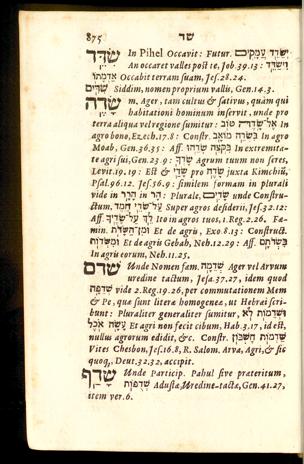 875 שד
שִׂדֵּד In Pihel Occavit: Futur. יְשַׂדֵּד עֲמָקִים
An occaret valles post te, Job. 39. 13: וִישַׂדֵּד
אַדְמָתוֹ Occabit terram suam, Jes. 28. 24.
שִׂדִּים Siddim, nomen proprium vallis, Gen. 14. 3.
שָׂדֶה m. Ager, tam cultus & sativus, quàm qui
habitationi hominum inservit, unde pro
terra aliqua vel regione sumitur: אֶל־שָׂדֶה טוֹב In
agro bono, Ezech. 17. 8: Constr. בִּשְׂדֵה מוֹאָב In agro
Moab, Gen. 36. 35: Aff. בִּקְצֵה שָׂדֵהוּ In extremita-
te agri sui, Gen. 23. 9: שָׂדְךָ Agrum tuum non seres,
Levit. 19. 19: Est & שָׂדַי pro שָׂדֶה juxta Kimchiū,
Psal. 96. 12. Jes. 56. 9: similem formam in plurali
vide in הַר: Plurale, שָׂדִים unde Constru-
ctum, עַל־שְׂדֵי חֶמֶד Super agros desiderii, Jes. 32. 12:
Aff. לֵךְ עַל־שָׂדֶיךָ Ito in agros tuos, 1. Reg. 2. 26. Fœ-
min. וּמִן־הַשָּׂדֹת Et de agris, Exo. 8. 13: Construct.
וּמִשְּׂדוֹת Et de agris Gebah, Neh. 12. 29: Aff. בִּשְׂדֹתָם
In agris eorum, Neh. 11. 25.
שדם Unde Nomen fœm. שְׁדֵמָה Ager vel Arvum
uredine tactum, Jesa. 37. 27, idem quod
שדף vide 2. Reg. 19. 26, per commutationem Mem
& Pe, quæ sunt literæ homogeneæ, ut Hebræi scri-
bunt: Pluraliter generaliter sumitur, וּשְׁדֵמוֹת לֹא
עָשָׂה אֹכֶל Et agri non fecit cibum, Hab. 3. 17, id est,
nullus agrorum edidit, &c. Constr. שַׁדְמוֹת חֶשְׁבּוֹן
Vites Chesbon, Jes. 16. 8, R. Salom. Arva, Agri, & sic
quoq₃. Deut. 32. 32, accipit.
שדף Unde Particip. Pahul sive præteritum,
שְׁדֻפוֹת Adusta, Uredine-tacta, Gen. 41. 27,
item ver. 6.